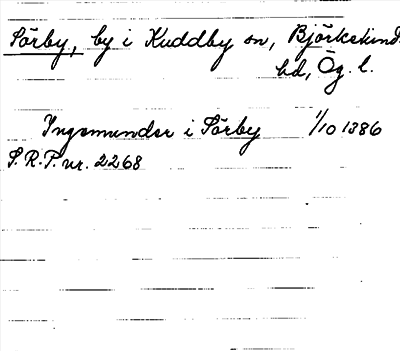 Sörby, by i Kuddby sn, Björkekinds
hd, Ög. l.
Ingemunder i Sörby 1/10 1386
S.R.P. nr. 2268